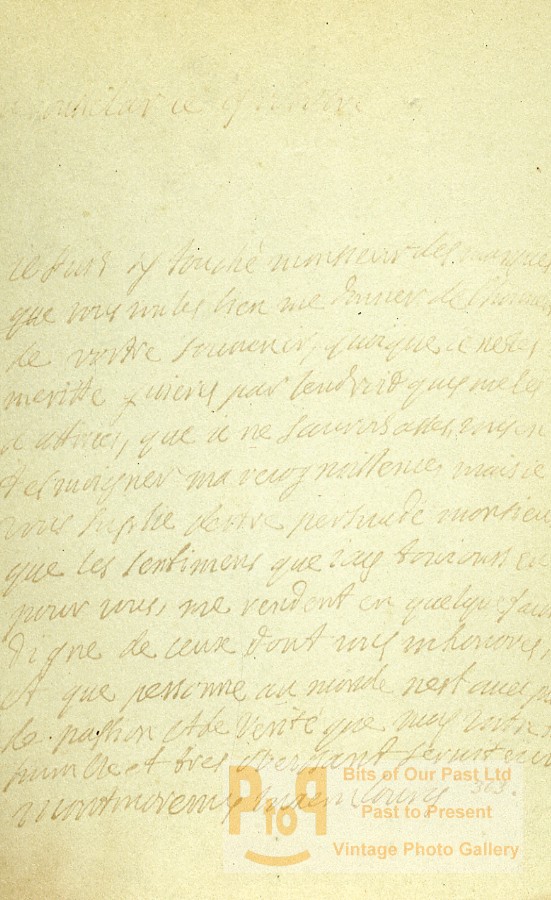 ie suis sy touché monsieur des marques
que vous voules bien me donner de l'honneur
de vostre souvenir, quoique ie ne les
meritte guieres par lendroit quy me les
attires, que ie ne saurois asses vous en
tesmoigner ma recognoissence, mais ie
vous suplie destre persuadé monsieur
que les sentimens que iay tousiours eu
pour vous, me rendent en quelque fason
digne de ceux dont vous mhonores,
et que personne au monde nest avec plus
de passion et de verité que moy vostre
humble et tres obeissant serviteur
montmorency luxembourg
363.
Bits of Our Past Ltd
PtoP
Past to Present
Vintage Photo Gallery